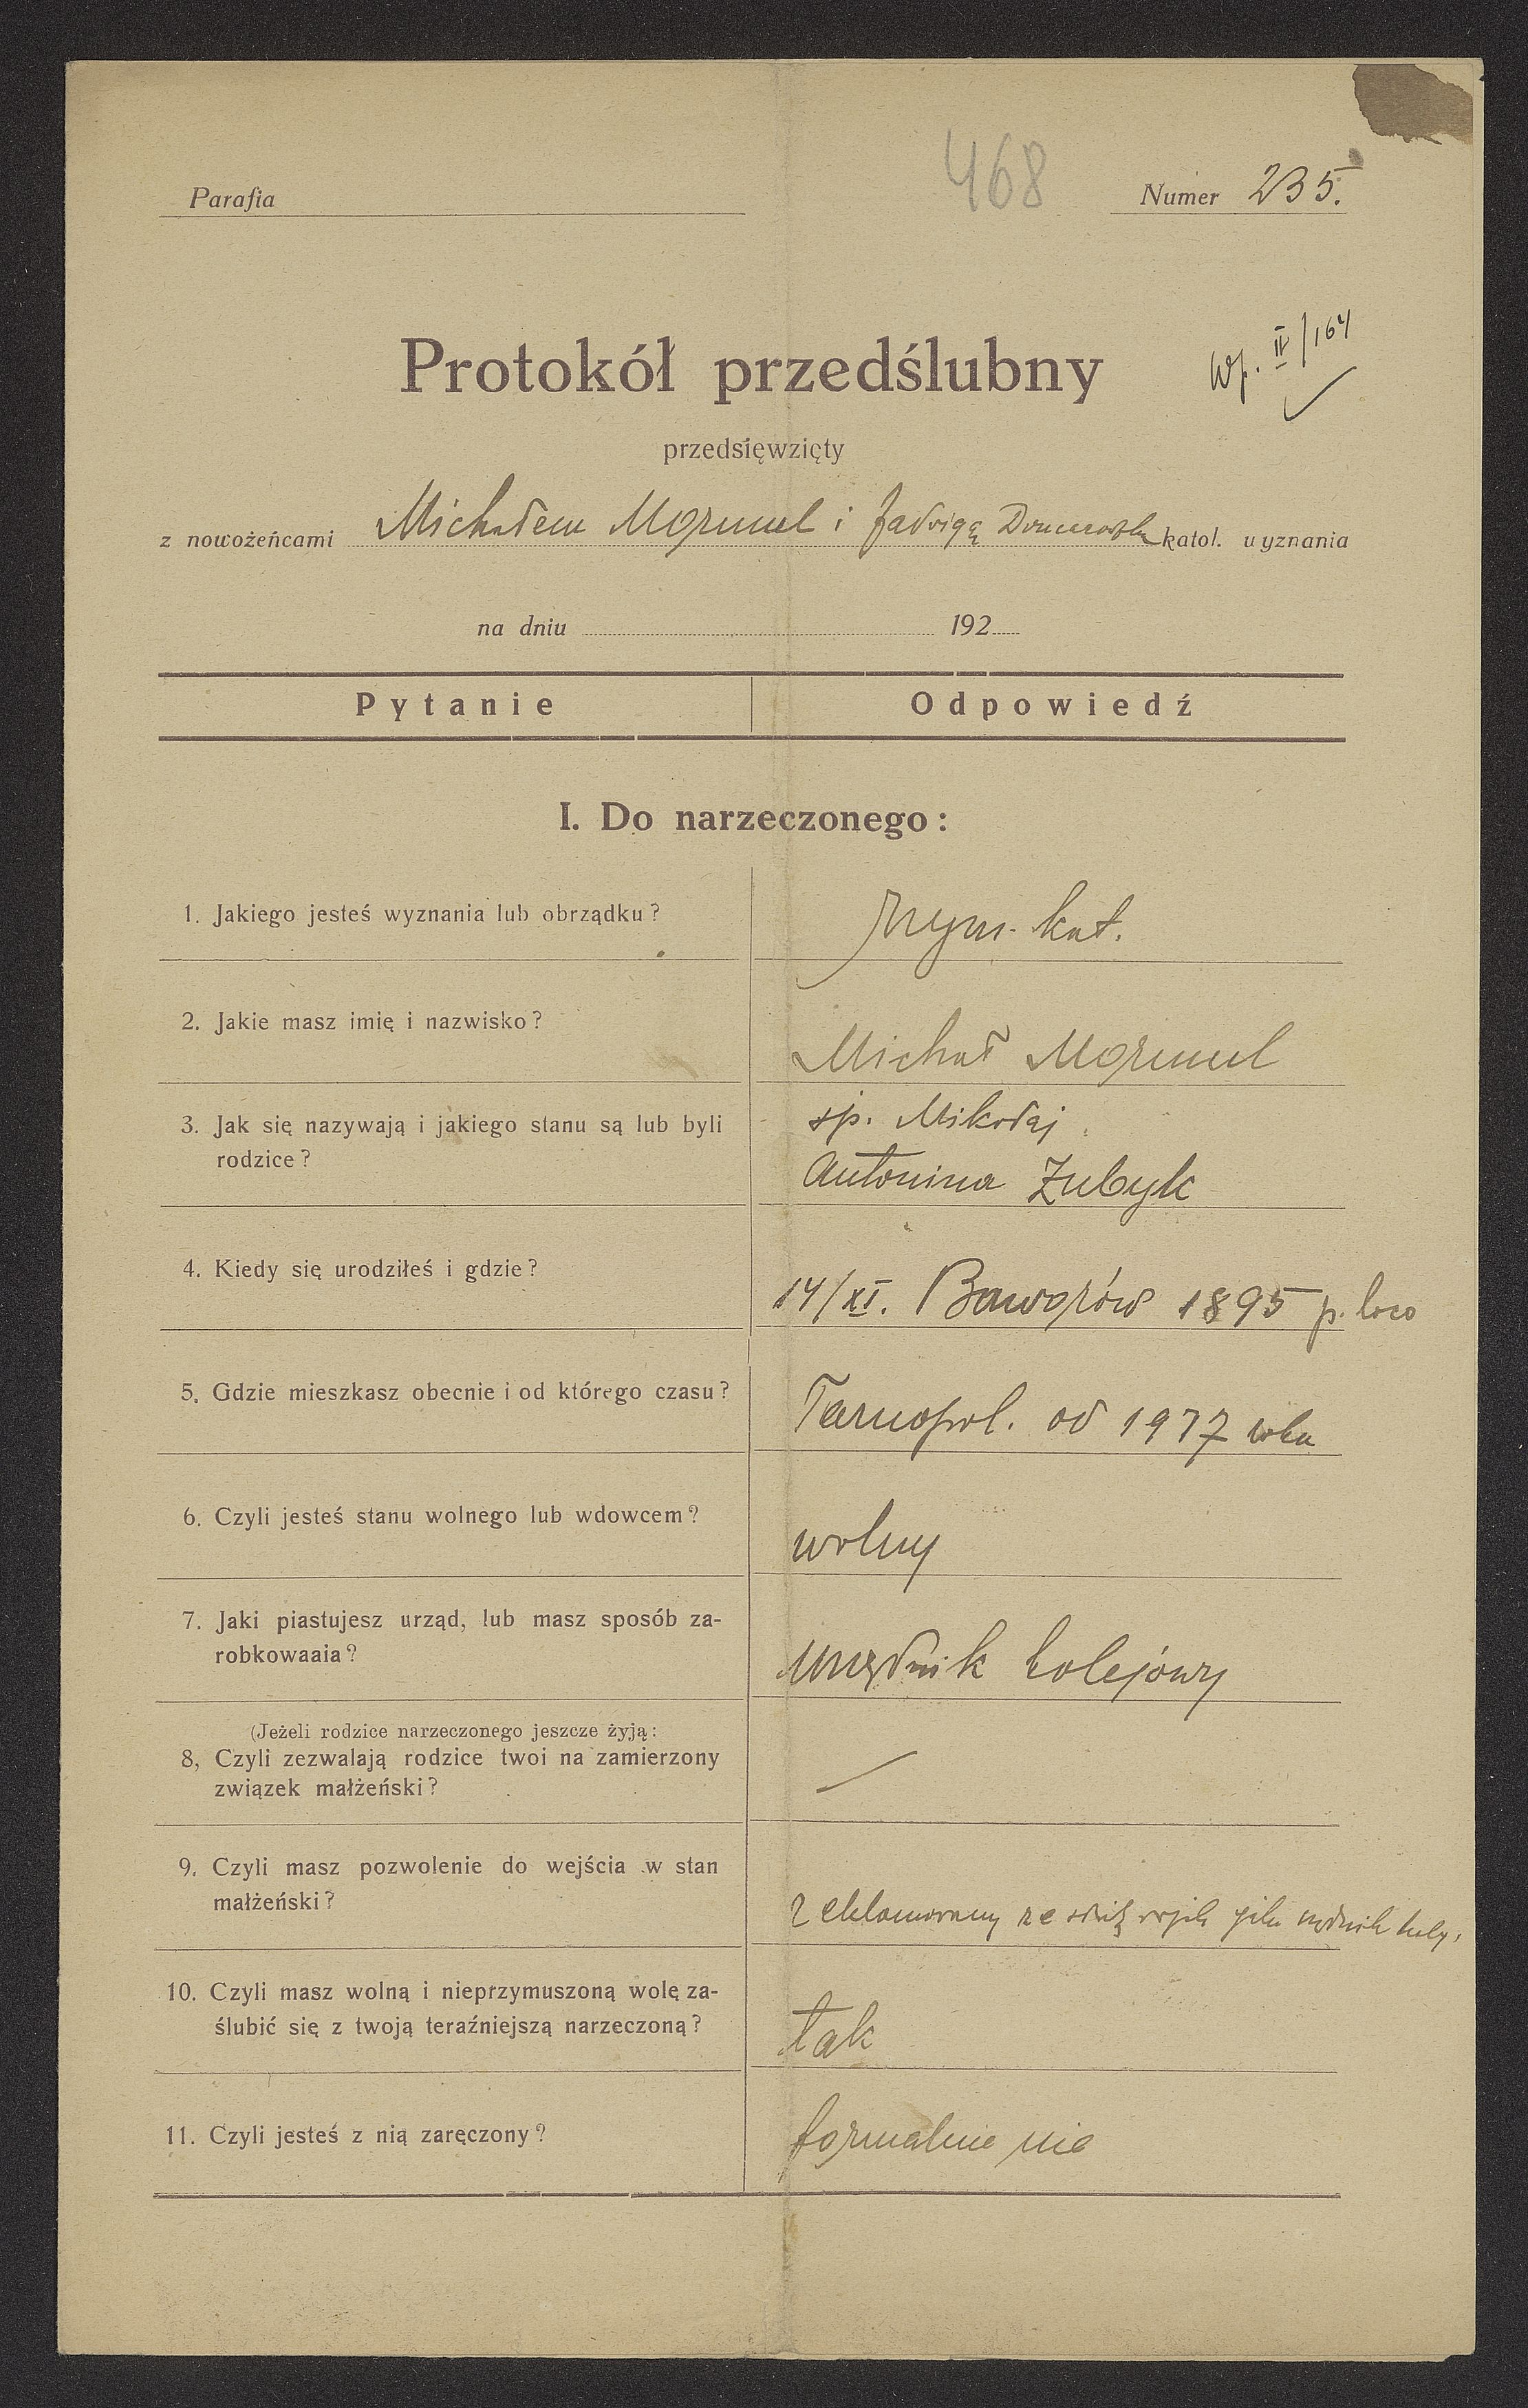 468
Parafia
Numer 235.
Wp. II/164
Protokół przedślubny
przedsięwzięty
z nowożeńcami Michałem Mormul i Jadwigą katol. wyznania
na dniu 192
Pytanie Odpowiedź
I. Do narzeczonego:
1. Jakiego jesteś wyznania lub obrządku?
rzym. kat.
2. Jakie masz imię i nazwisko?
Michał Mormul
3. Jak się nazywają i jakiego stanu są lub byli
rodzice?
śp. Mikołaj
Antonina Zubyk
4. Kiedy się urodziłeś i gdzie?
14/XI. Baworów 1895 p. loco
5. Gdzie mieszkasz obecnie i od którego czasu?
Tarnopol. od 1917 roku
6. Czyli jesteś stanu wolnego lub wdowcem?
wolny
7. Jaki piastujesz urząd, lub masz sposób za-
robkowaaia?
urzędnik kolejowy
(Jeżeli rodzice narzeczonego jeszcze żyją:
8, Czyli zezwalają rodzice twoi na zamierzony
związek małżeński?
9. Czyli masz pozwolenie do wejścia w stan
małżeński?
10. Czyli masz wolną i nieprzymuszoną wolę za-
ślubić się z twoją teraźniejszą narzeczoną?
tak
11. Czyli jesteś z nią zaręczony?
formalnie nie